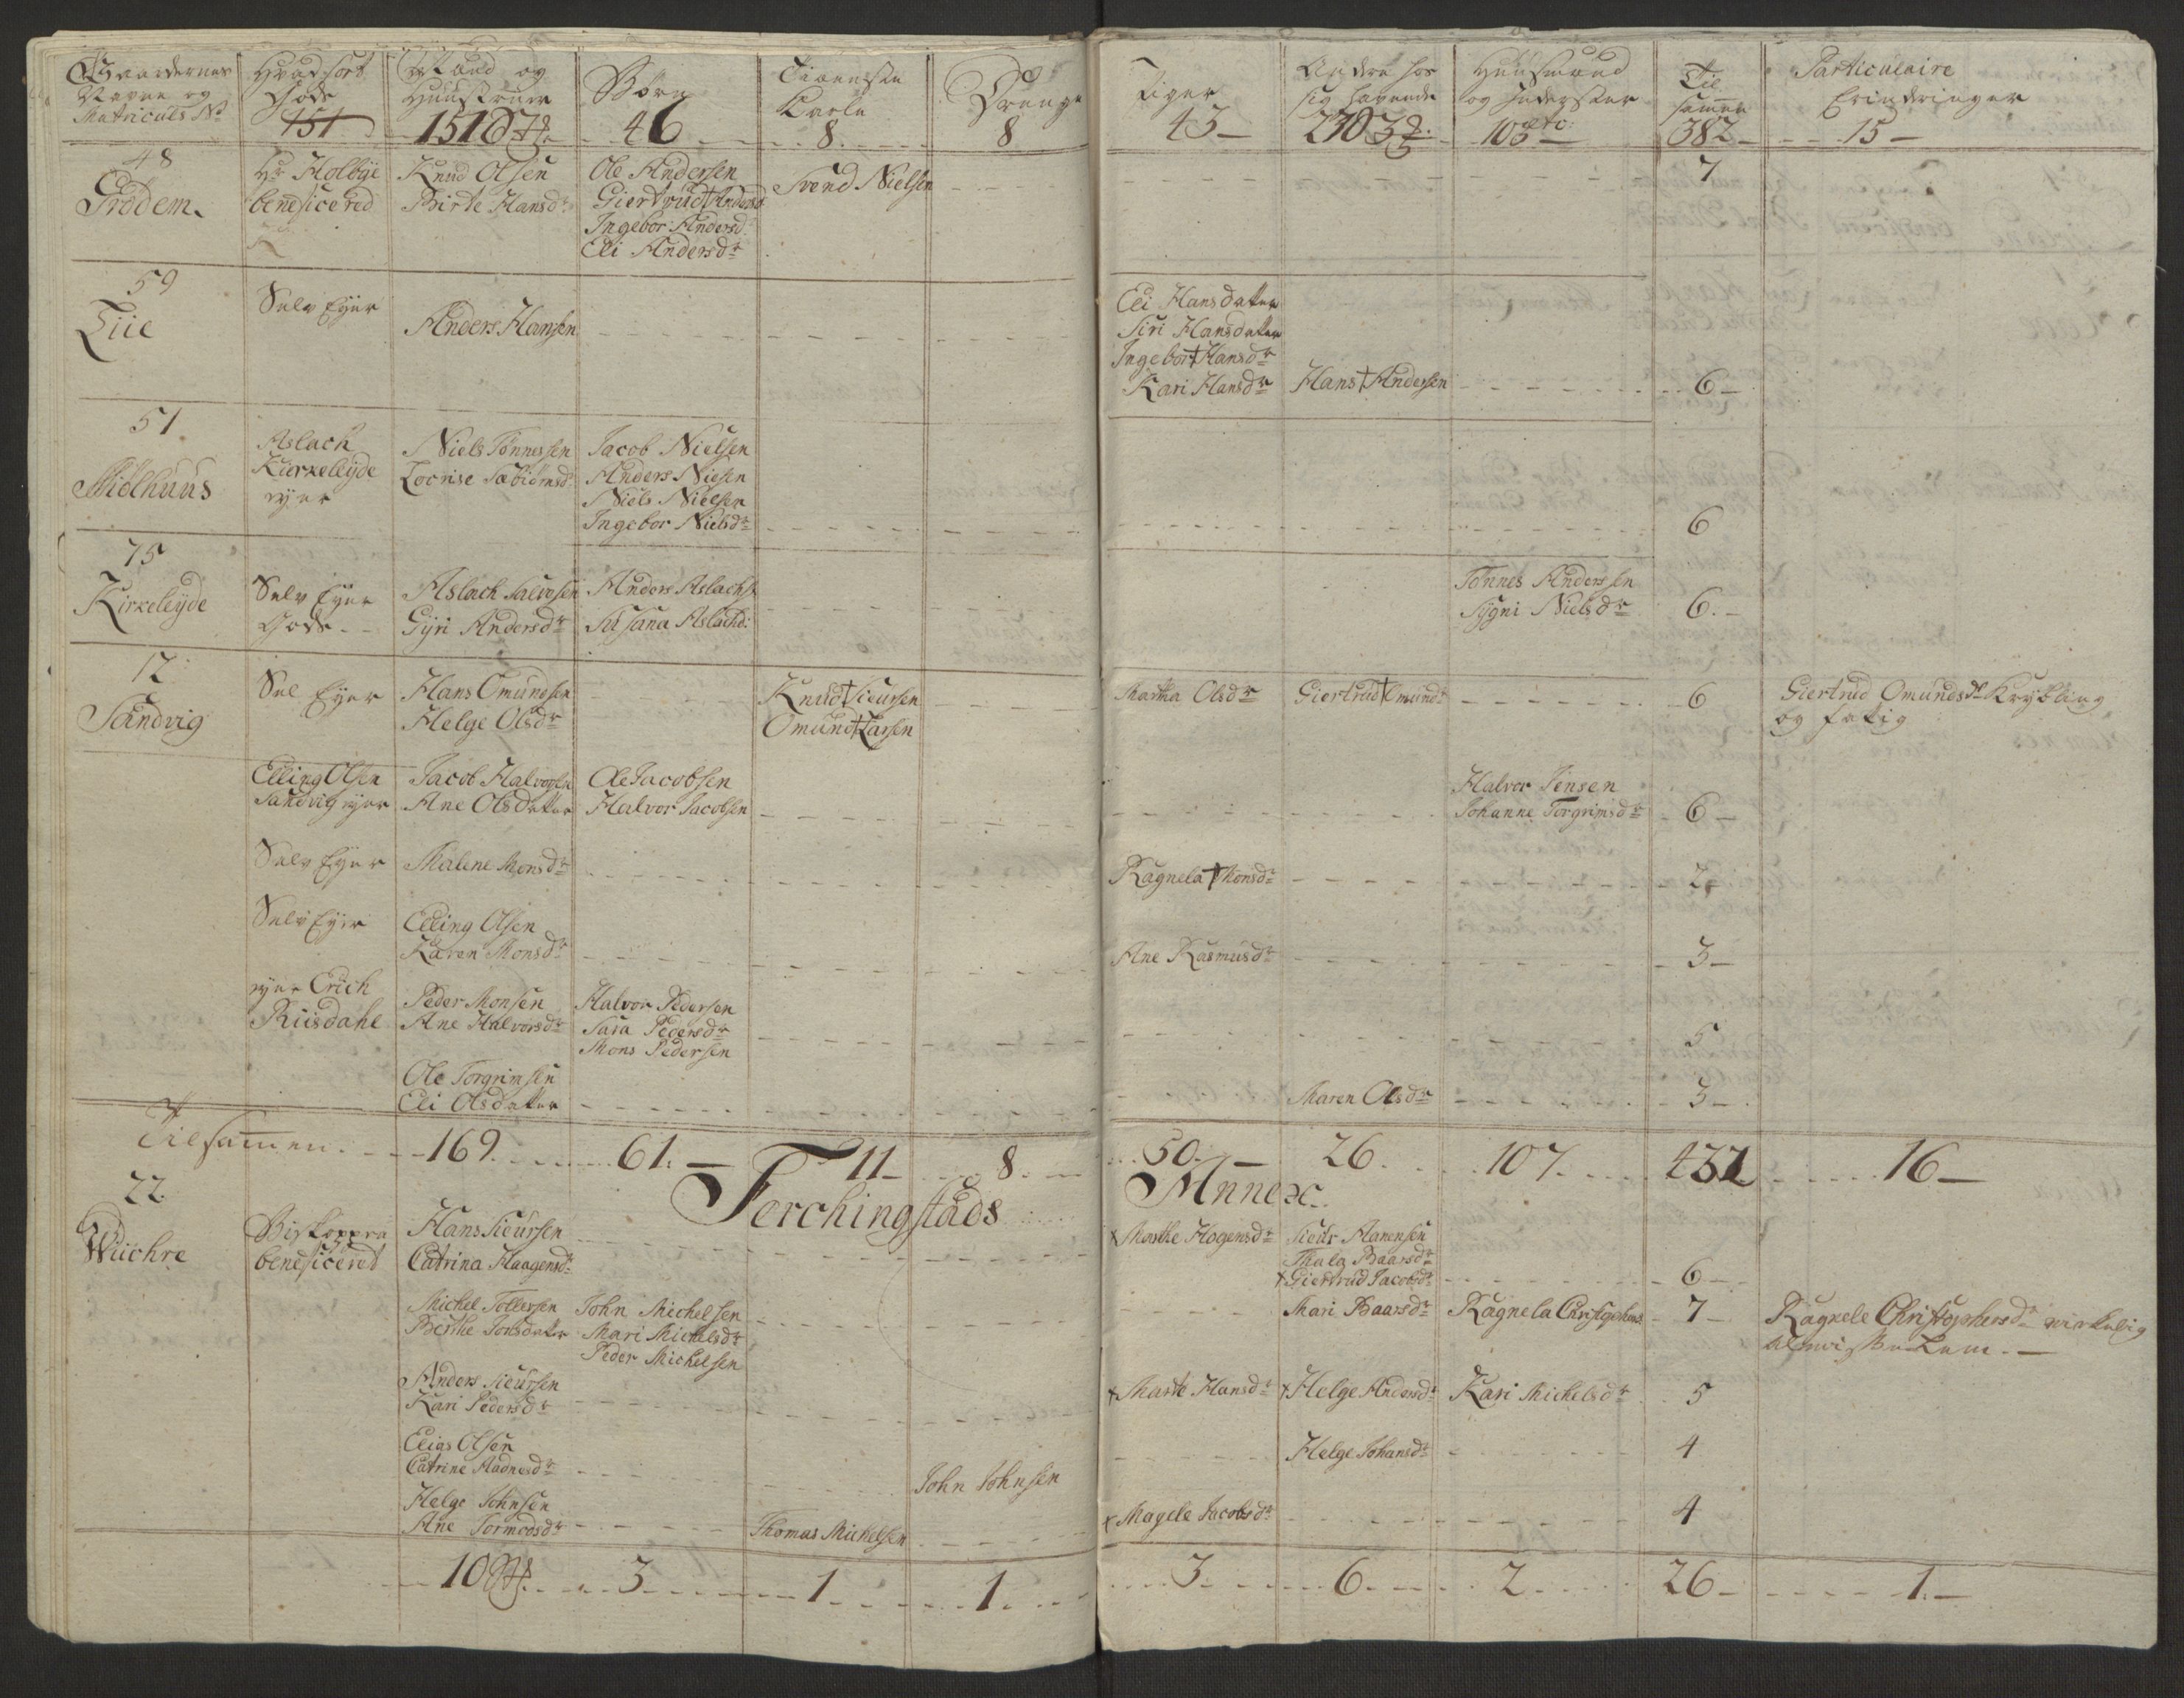 Gaardernes
Navne og
Matriculs No
Hvad sort
Gods
151
Mænd og
Huustruer
151
Børn
46
Tieneste
Karle
8
Drenge
8
Piger
43
Andre hos
sig havende
23
Huusmænd
og Inderster
etc:
105
Til
sammen
382
Particulaire
Erindringer
15
48
Grødem
Hr Holbye
beneficered
Knud Olsen
Birte Hansdr
Ole Andersen
Giertrud Andersd
Ingebor Andersd
Eli Andersdr
Svend Nielsen
7
59
Selv Eyer
Anders Hansen
Eli Hansdatter
Siri Hansdatter
Ingebor Hansdr
Kari Hansdr
Hans Andersen
6
51
Midhuus
Aslach
Kirkeleyde
eyer
Niels Tønnessen
Jacob Nielsen
Anders Nielsen
Niels Nielsen
Ingebor Nielsdr
6
75
Kirkeleyde
Selv Eyer
Gods
Aslach Salvesen
Gyri Andersdr
Anders Aslachs
Susana Aslachd:
Tønnes Andersen
Sygni Nielsdr
6
12
Sandvig
Sel Eyer
Hans Omundsen
Helge Olsdr
Knud Sicursen
Omund Larsen
Martha Olsdr
Giertrud Omundr
6
Giertrud Omundsdr Krybling
og fatig
Elling Olsen
Sandvig eyer
Jacob Halvorsen
Ane Olsdatter
Ole Jacobsen
Halvor Jacobsen
Halvor Jensen
Johanne Torgrimsdr
6
Selv Eyer
Malene Monsdr
Ragnela Monsdr
2
Selv Eyer
Elling Olsen
Karen Monsdr
Ane Rasmusdr
3
eyer Erich
Riisdahl
Peder Monsen
Ane Halvorsdr
Halvor Pedersen
Sara Pedersdr
Mons Pedersen
5
Ole Torgrimsen
Eli Olsdatter
Maren Olsdr
3
Tilsammen
169
61
11
8
50
26
107
432
16
Ferchingstads
Annex
22
Biskoppen
beneficeret
Hans Sicursen
Catrina Haagensdr
Marthe Hogensdr
Sicur Hanensen
Thala Baarsdr
Giertrud Jacobsdr
6
Michel Tollefsen
Berthe Jonsdatter
John Michelsen
Mari Michelsdr
Peder Michelsen
Mari Baarsdr
Ragnela Christophersd
7
Ragnele Christophersdr virkelig
Almisselem
Anders Sicursen
Kari Pedersdr
Marte Hansdr
Helge Andersdr
Kari Michelsdr
5
Elias Olsen
Catrine Aadnesdr
John Johnsen
Helge Johansdr
4
Helge Johnsen
Ane Tormodsdr
Thomas Michelsen
Magele Jacobsdr
4
10
3
1
1
3
6
2
26
1